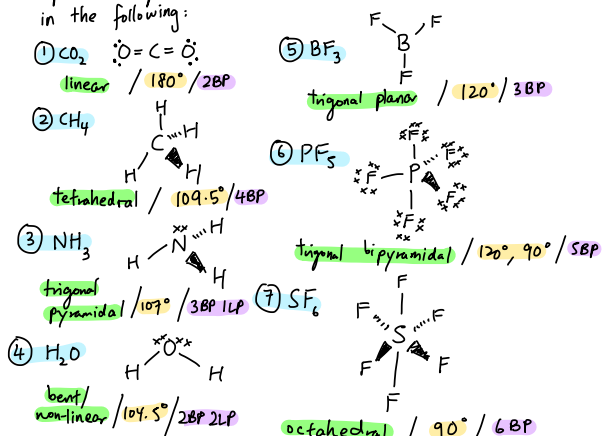 in the following:
① CO₂ O=C=O
linear / 180° / 2BP
② CH₄
H
C H
H H
tetrahedral / 109.5° / 4BP
③ NH₃
N H
H H
trigonal
pyramidal / 107° / 3BP 1LP
④ H₂O
O
H H
bent/
non-linear / 104.5° / 2BP 2LP
⑤ BF₃
F F
B
F
trigonal planar / 120° / 3BP
⑥ PF₅
F
F P F
F
F
trigonal bipyramidal / 120°, 90° / 5BP
⑦ SF₆
F
F F
S
F F
F
octahedral / 90° / 6BP